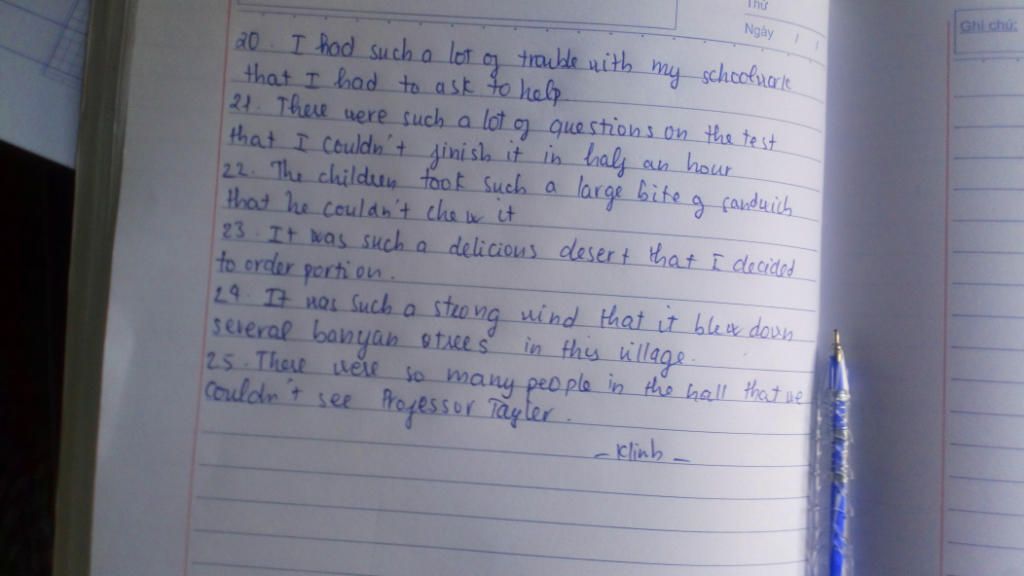 Thứ
Ngày / /
Ghi chú:
20. I had such a lot of trouble with my schoolwork
that I had to ask to help
21. There were such a lot of questions on the test
that I couldn't finish it in half an hour
22. The children took such a large bite of sanduich
that he couldn't chew it
23. It was such a delicious desert that I decided
to order portion.
24. It was such a strong wind that it blew down
several banyan otrees in this village.
25. There were so many people in the hall that we
couldn't see Professor Tayler.
- Klinh -